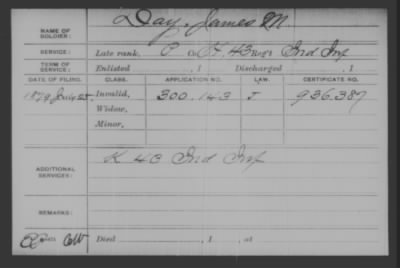 Day, James M
NAME OF SOLDIER:
SERVICE: Late rank, P Co. K, 43 Reg't Ind Inf
TERM OF SERVICE: Enlisted , 1 Discharged , 1
DATE OF FILING. CLASS. APPLICATION NO. LAW. CERTIFICATE NO.
1879 July 25, Invalid, 300.143 J 936.387
Widow,
Minor,
K 43 Ind Inf
ADDITIONAL SERVICES:
REMARKS:
Died , 1 , at